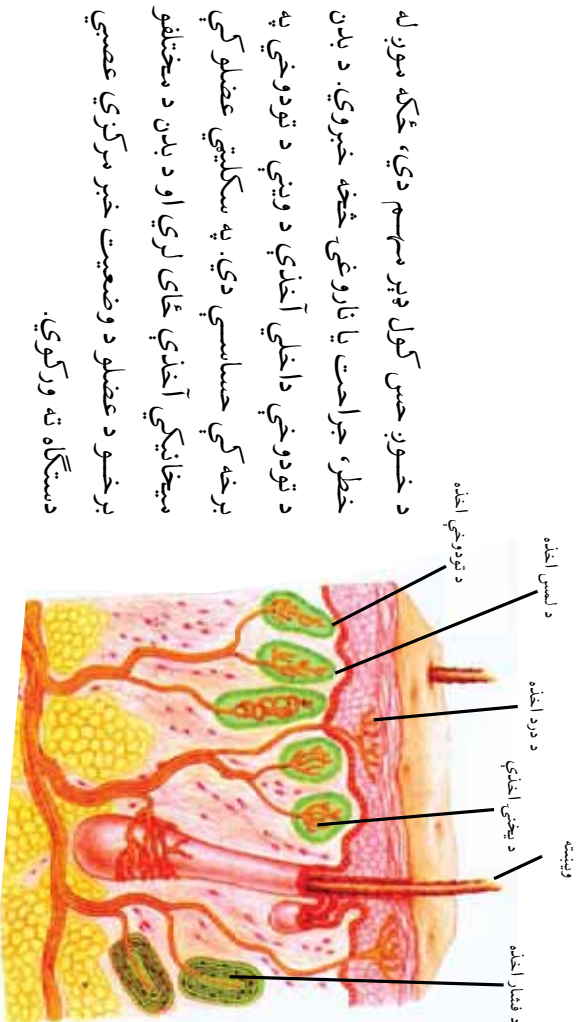 د خوږ حس کول ډېر مهم دي، ځکه موږ له
خطر، جراحت يا ناروغۍ څخه خبروي. د بدن
د تودوخې داخلي آخذې د وينې د تودوخې په
برخه کې حساسې دي. په سکليټي عضلو کې
ميخانيکي آخذې ځای لري او د بدن د مختلفو
برخو د عضلو د وضعيت خبر مرکزي عصبي
دستګاه ته ورکوي.
د تودوخې اخذه
د لمس اخذه
د درد اخذه
د يخنۍ اخذې
وېښته
د فشار اخذه